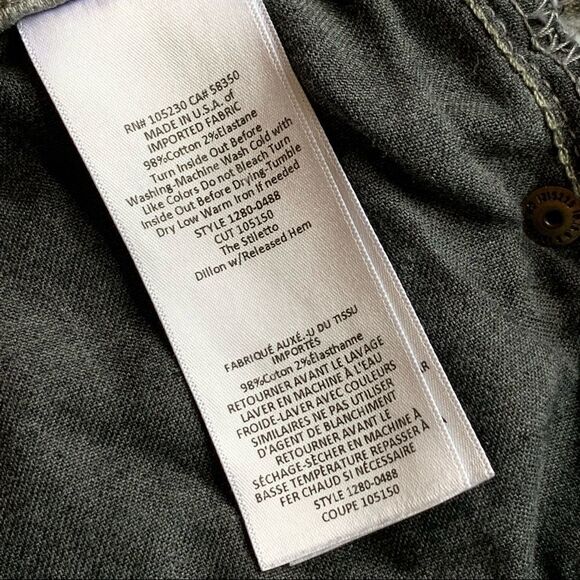 RN# 105230 CA# 58350
MADE IN U.S.A. of
IMPORTED FABRIC
98%Cotton 2%Elastane
Turn Inside Out Before
Washing-Machine Wash Cold with
Like Colors Do not Bleach Turn
Inside Out Before Drying-Tumble
Dry Low Warm Iron if needed
STYLE 1280-0488
CUT 105150
The Stiletto
Dillon w/Released Hem
FABRIQUÉ AUXÉ.-U DU TISSU
IMPORTÉS
98%Coton 2%Élasthanne
RETOURNER AVANT LE LAVAGE
LAVER EN MACHINE À L'EAU
FROIDE-LAVER AVEC COULEURS
SIMILAIRES NE PAS UTILISER
D'AGENT DE BLANCHIMENT
RETOURNER AVANT LE
SÉCHAGE-SÉCHER EN MACHINE À
BASSE TEMPÉRATURE REPASSER À
FER CHAUD SI NÉCESSAIRE
STYLE 1280-0488
COUPE 105150